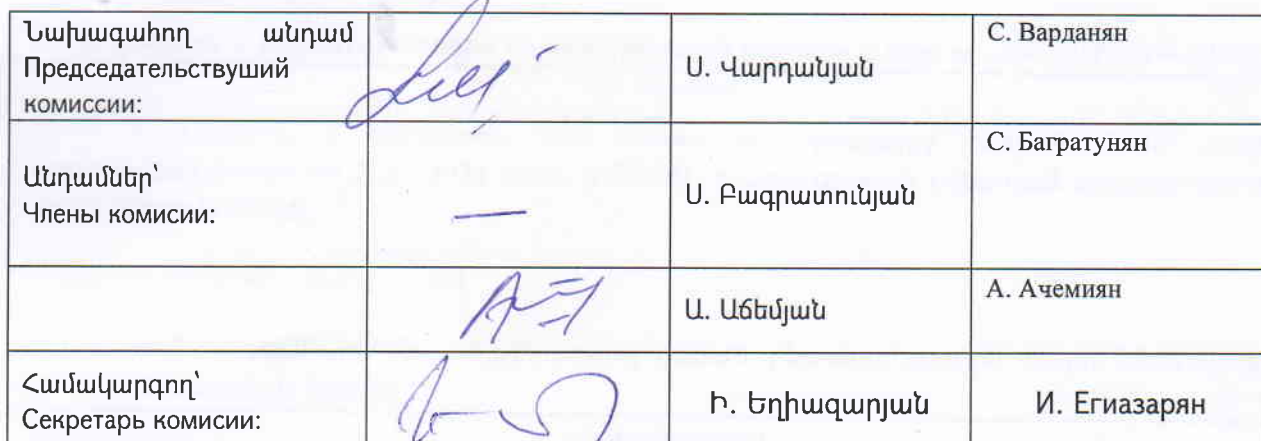 Նախագահող անդամ
Председательствуший
комиссии:
Ս. Վարդանյան
С. Варданян
Անդամներ՝
Члены комисии:
—
Ս. Բագրատունյան
С. Багратунян
Ա. Աճեմյան
А. Ачемиян
Համակարգող՝
Секретарь комисии:
Ի. Եղիազարյան
И. Егиазарян